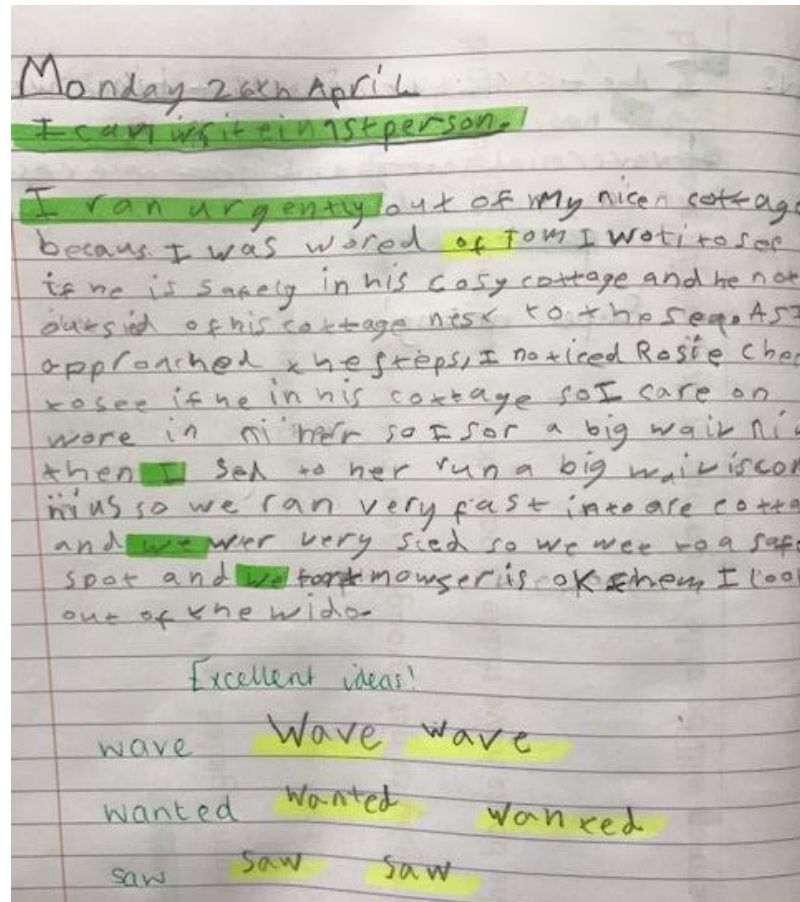 Monday 26th April
I can write in 1st person.
I ran urgently out of my nicen cottage
becaus. I was wored of Tom I woti to see
if he is safely in his cosy cottage and he not
outsid of his cottage nesc to the sea. As I
approached the steps, I noticed Rosie
to see if he in his cottage so I care on
wore in her so I sor a big waiv
then I sed to her run a big waiv is
so we ran very fast into are
and we wer very scied so we wet to a safe
spot and we mowser is ok them I
out of the wido.
Excellent ideas!
wave Wave wave
wanted Wanted wanted
saw saw saw